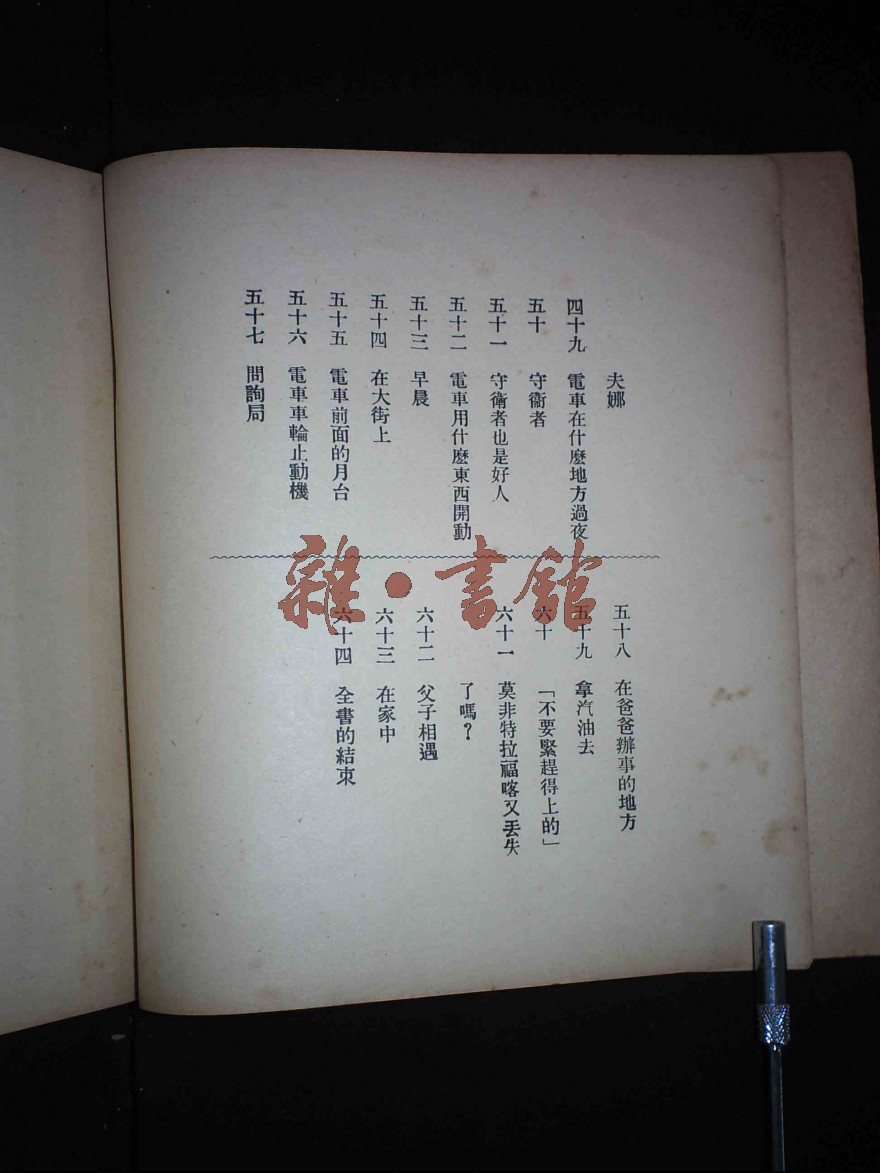 夫娜
四十九 電車在什麽地方過夜
五十 守衞者
五十一 守衞者也是好人
五十二 電車用什麽東西開動
五十三 早晨
五十四 在大街上
五十五 電車前面的月台
五十六 電車車輪止動機
五十七 問詢局
五十八 在爸爸辦事的地方
五十九 拿汽油去
六十 「不要緊趕得上的」
六十一 莫非特拉福喀又丟失
了嗎？
六十二 父子相遇
六十三 在家中
六十四 全書的結束
雜·書館